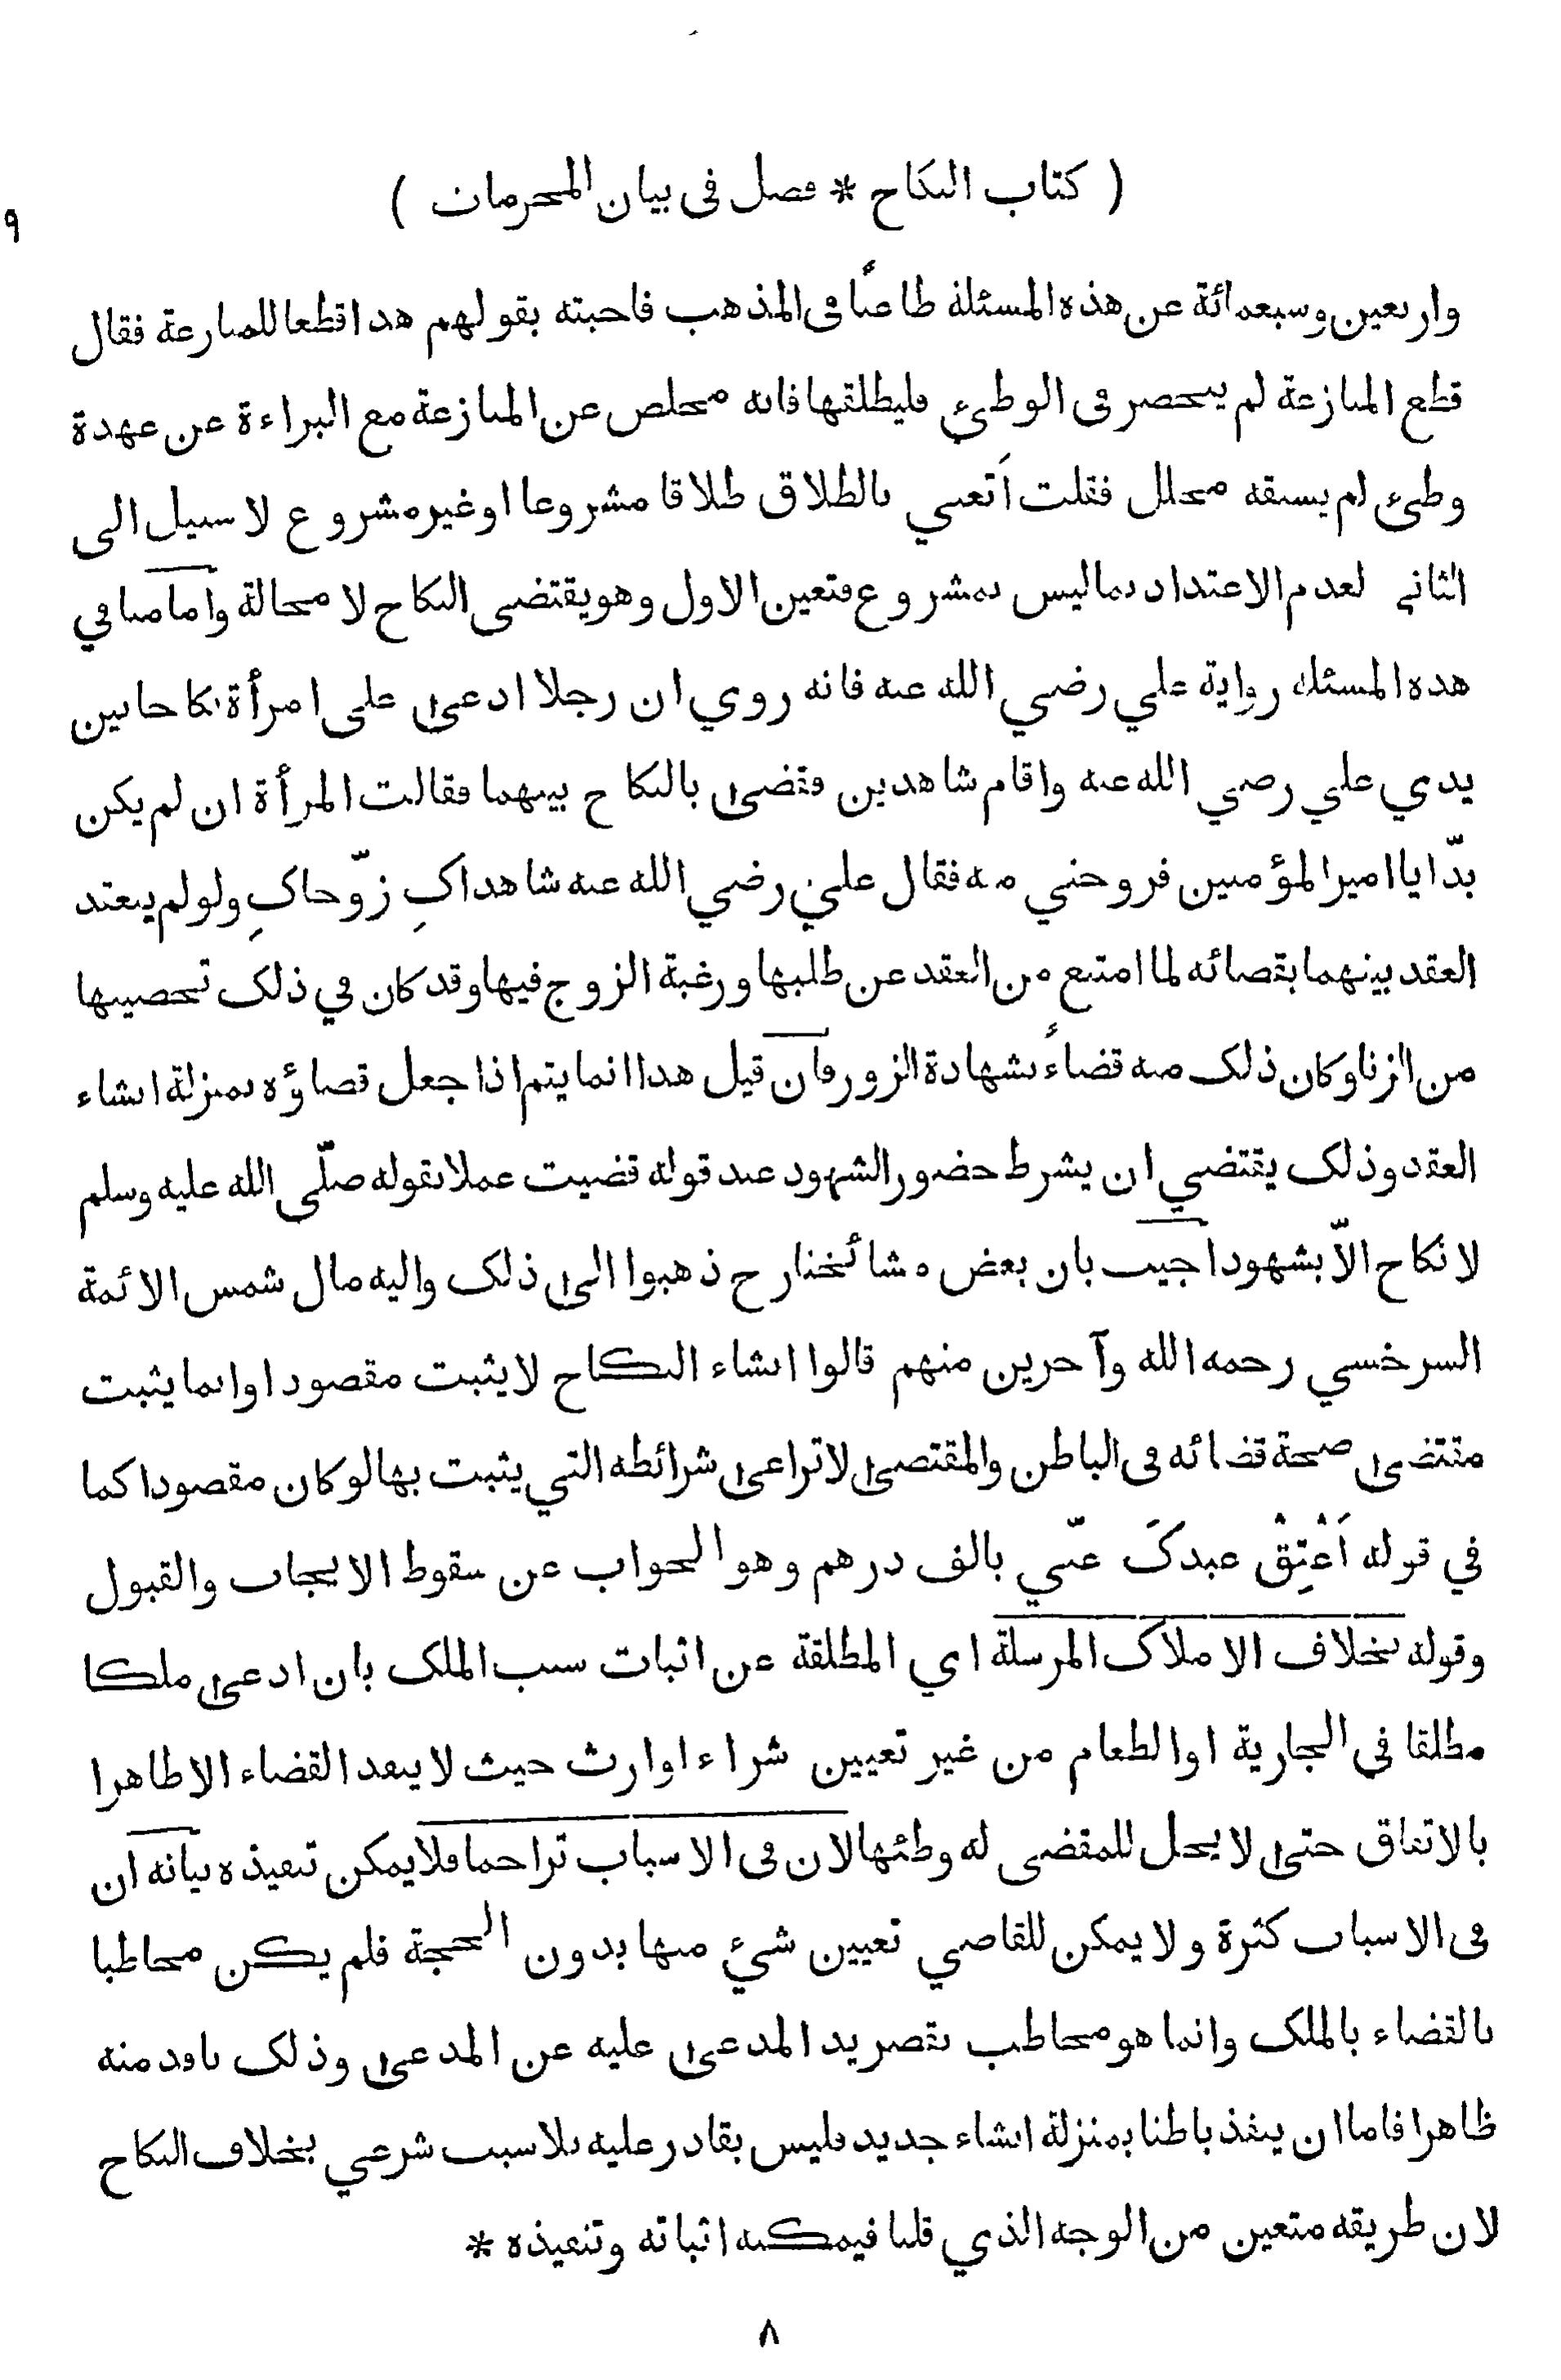 ( كتاب النكاح * فصل فى بيان المحرمات )
٩
واربعين وسبعمائة عن هذه المسئلة طاعنًا فى المذهب فاجبته بقولهم هذا قطعا للمنازعة فقال
قطع المنازعة لم ينحصر فى الوطئ فليطلقها فانه مخلص عن المنازعة مع البراءة عن عهدة
وطئ لم يسبقه محلل فقلت أتعني بالطلاق طلاقا مشروعا اوغيرمشروع لا سبيل الى
الثاني لعدم الاعتداد بماليس بمشروع فتعين الاول وهويقتضى النكاح لا محالة وامامنا في
هذه المسئلة رواية علي رضي الله عنه فانه روي ان رجلا ادعى على امرأة نكاحا بين
يدي علي رضي الله عنه واقام شاهدين فقضى بالنكاح بينهما فقالت المرأة ان لم يكن
بدّ ايا امير المؤمنين فزوجني منه فقال علي رضي الله عنه شاهداكِ زوّجاكِ ولولم ينعقد
العقد بينهما بقضائه لما امتنع من العقد عن طلبها ورغبة الزوج فيها وقد كان في ذلك تحصينها
من الزنا وكان ذلك منه قضاءً بشهادة الزور فان قيل هذا انما يتم اذا جعل قضاؤه بمنزلة انشاء
العقد وذلك يقتضي ان يشرط حضور الشهود عند قوله قضيت عملا بقوله صلّى الله عليه وسلم
لا نكاح الاّ بشهود اجيب بان بعض مشائخنا رح ذهبوا الى ذلك واليه مال شمس الائمة
السرخسي رحمه الله وآخرين منهم قالوا انشاء النكاح لا يثبت مقصودا وانما يثبت
مقتضى صحة قضائه فى الباطن والمقتضى لا تراعى شرائطه التي يثبت بها لو كان مقصودا كما
في قوله أَعْتِقْ عبدكَ عنّي بالف درهم وهو الجواب عن سقوط الايجاب والقبول
وقوله بخلاف الاملاك المرسلة اي المطلقة عن اثبات سبب الملك بان ادعى ملكا
مطلقا في الجارية او الطعام من غير تعيين شراء اوارث حيث لا ينفذ القضاء الا ظاهرا
بالاتفاق حتى لا يحل للمقضى له وطئها لان فى الاسباب تزاحما فلا يمكن تنفيذه بيانه ان
فى الاسباب كثرة ولا يمكن للقاضي تعيين شئ منها بدون الحجة فلم يكن مخاطبا
بالقضاء بالملك وانما هو مخاطب بقصر يد المدعى عليه عن المدعى وذلك نافذ منه
ظاهرا فاما ان ينفذ باطنا بمنزلة انشاء جديد فليس بقادر عليه بلا سبب شرعي بخلاف النكاح
لان طريقه متعين من الوجه الذي قلنا فيمكنه اثباته وتنفيذه *
٨